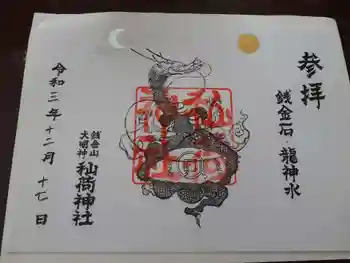 参拝
銭金石・龍神水
銭金山
大明神
秈荷神社
令和三年十二月十七日